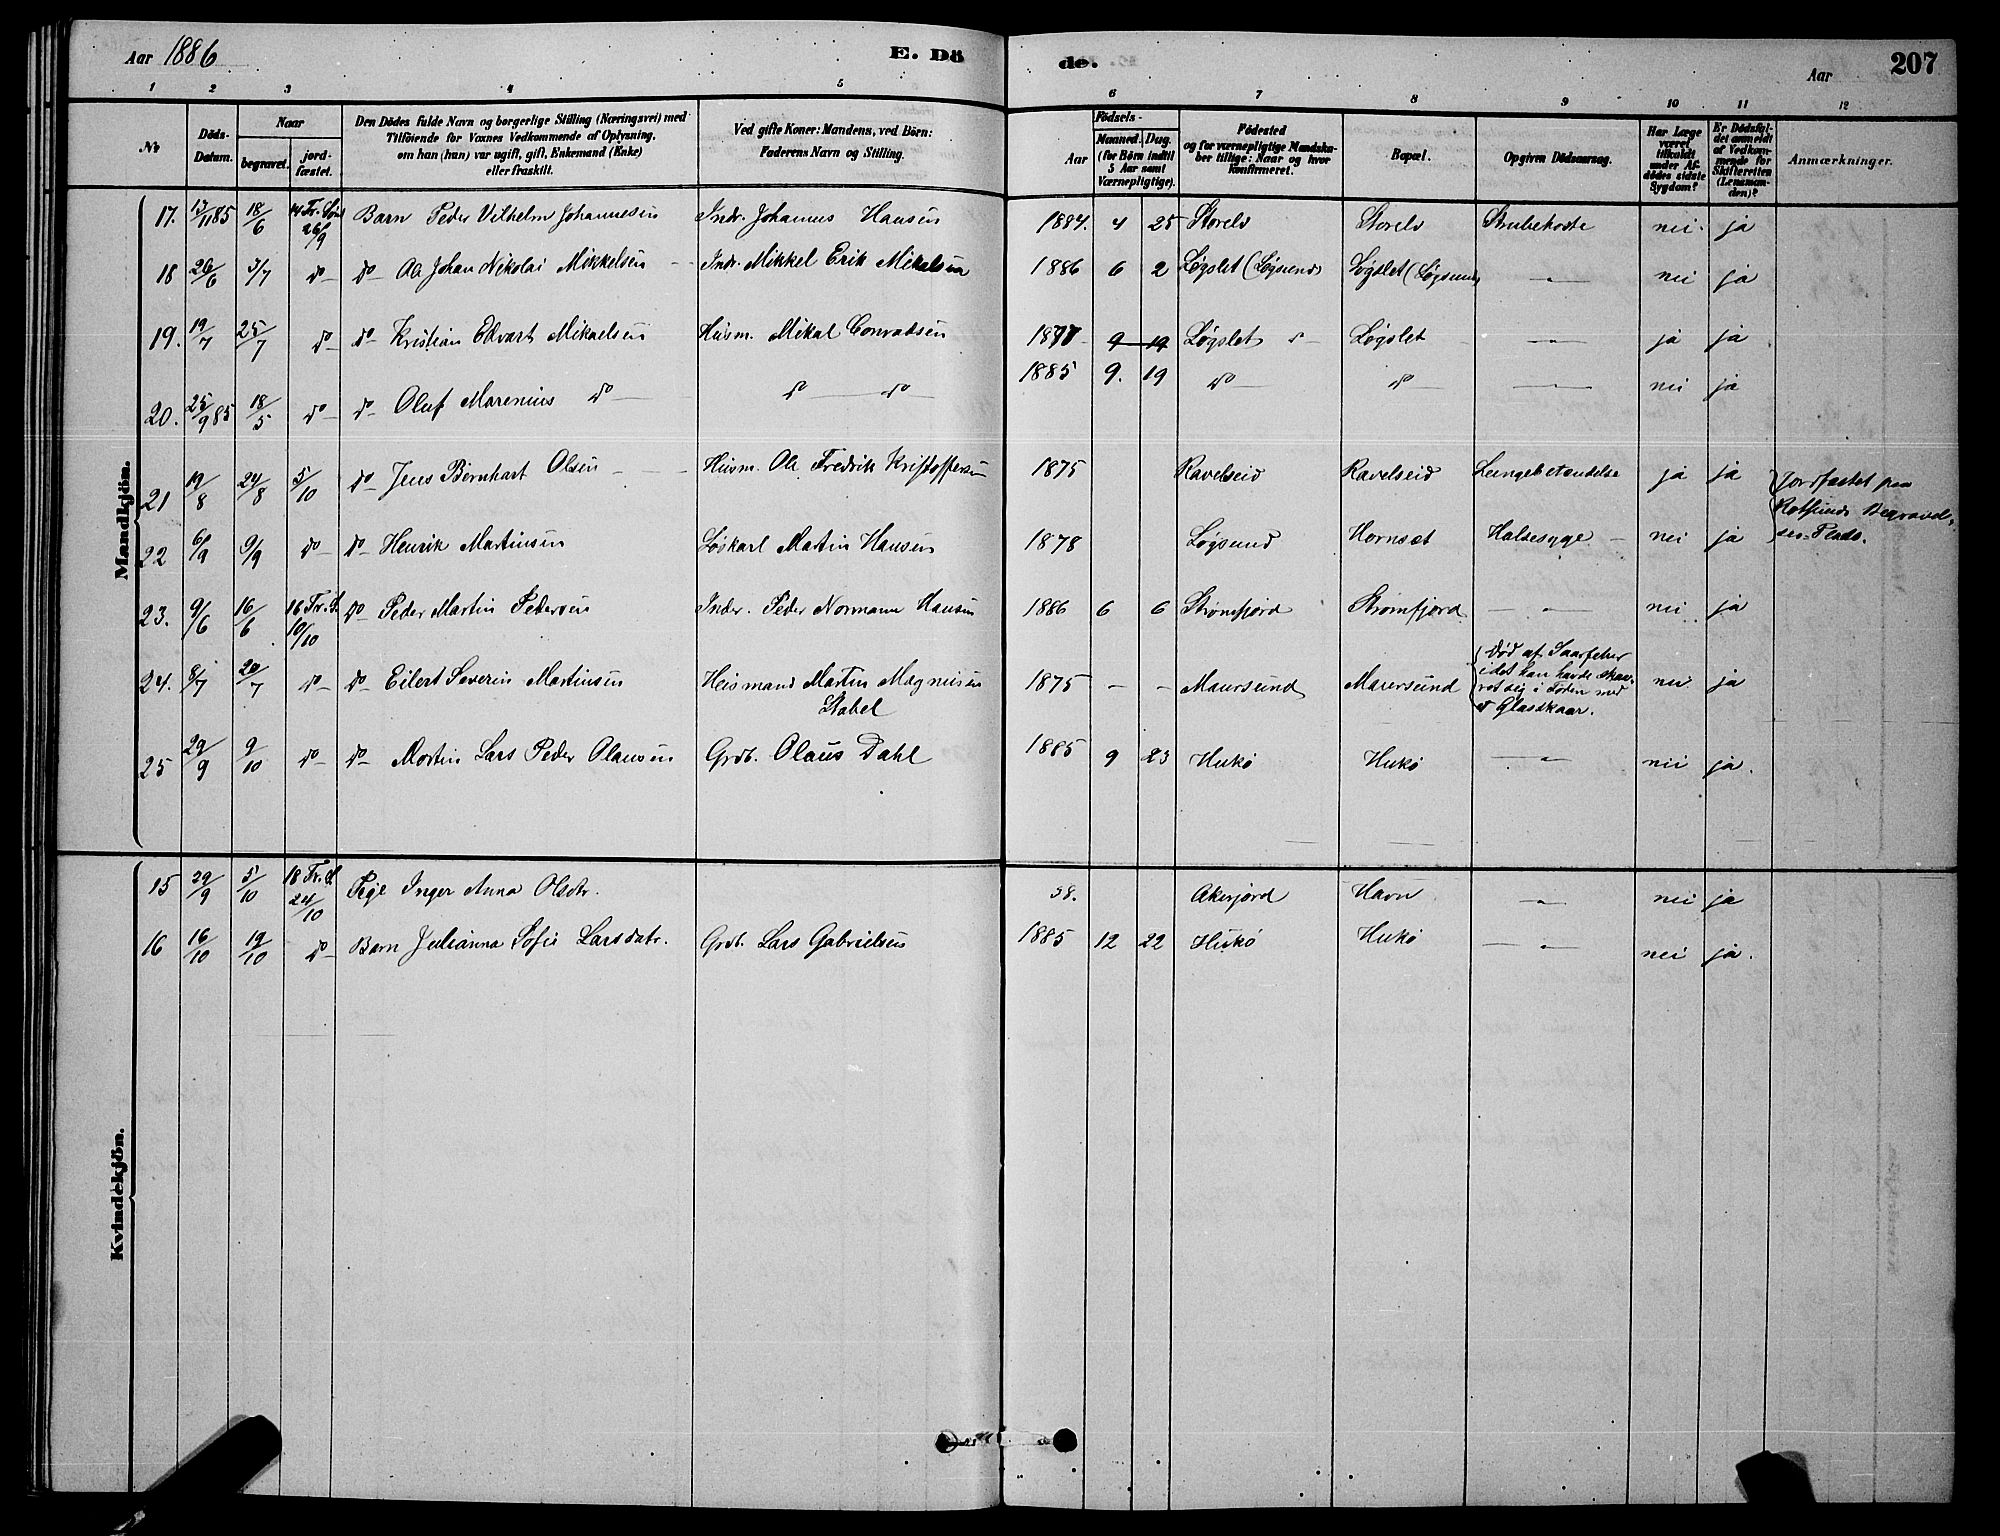 Aar 1886 E. Dö de. Aar 207
1 2 3 4 5 6 7 8 9 10 11 12
No
Döds-Datum.
Naar
begravet.
jordfæstet.
Den Dödes fulde Navn og borgerlige Stilling (Næringsvei) med
Tilföiende for Voxnes Vedkommende af Oplysning,
om han (hun) var ugift, gift, Enkemand (Enke)
eller fraskilt.
Ved gifte Koner: Mandens, ved Börn:
Faderens Navn og Stilling.
Födsels-
Aar
Maaned. Dag.
(for Börn indtil
5 Aar samt
Værnepligtige).
Födested
og for værnepligtige Mandska-
ber tillige: Naar og hvor
konfirmeret.
Bopæl.
Opgiven Dödsaarsag.
Har Læge
været
tilkaldt
under Af-
dödes sidste
Sygdom?
Er Dödsfal-
det anmeldt
af Vedkom-
mende for
Skifteretten
(Lensman-
den)?
Anmærkninger.
Mandkjön.
17. 13/11 85 18/6 14 Fr. Søn 26/9 Barn Peder Vilhelm Johannesen Indr. Johannes Hansen 1884. 4 25 Storelv Storelv Strubehoste nei. ja
18 26/6 3/7 do do Ole Johan Nikolai Mikkelsen Indr. Mikkel Erik Mikelsen 1886 6 2 Løgslet (Løgsund) Løgslet (Løgsund) " nei ja
19. 19/7 25/7 do do Kristian Edvart Mikaelsen Husm. Mikal Conradsen 1877 9 19 Løgslet Løgslet " ja ja
20. 25/9 85 18/5 do do Oluf Marenius do do do 1885 9. 19 do do " nei ja
21 19/8 24/8 5/10 do Jens Bernhart Olsen Husm. Ole Fredrik Kristoffersen 1875 Ravelseid Ravelseid Lungebetændelse ja ja Jordfæstet paa
22 6/9 9/9 do do Henrik Martinsen Løskarl Martin Hansen 1878 Løgsund Hornset Halsesyge nei ja Rotsunds Begravel-
ses-Plads.
23. 9/6 16/6 16 Fr. S. 10/10 do Peder Martin Pedersen Indr. Peder Normann Hansen 1886 6 6 Strømfjord Strømfjord " nei ja
24. 8/7 20/7 do do Eilert Severin Martinsen Husmand Martin Magnusen
Stabel 1875 - - Maursund Maursund Død af Saarfeber
idet han havde skaa-
ret sig i Foden med
et Glasskaar. nei ja
25 29/9 9/10 do do Morten Lars Peder Olausen Grdb. Olaus Dahl 1885 9 23 Hukø Hukø " nei ja.
Kvindekjön.
15 29/9 5/10 18 Fr. S. 24/10 Pige Inger Anna Olsdtr. 38. Akerjord Havn " nei ja
16 16/10 19/10 do Barn Julianna Sofie Larsdatr. Grdb. Lars Gabrielsen 1885 12 22 Hukø Hukø " nei ja.